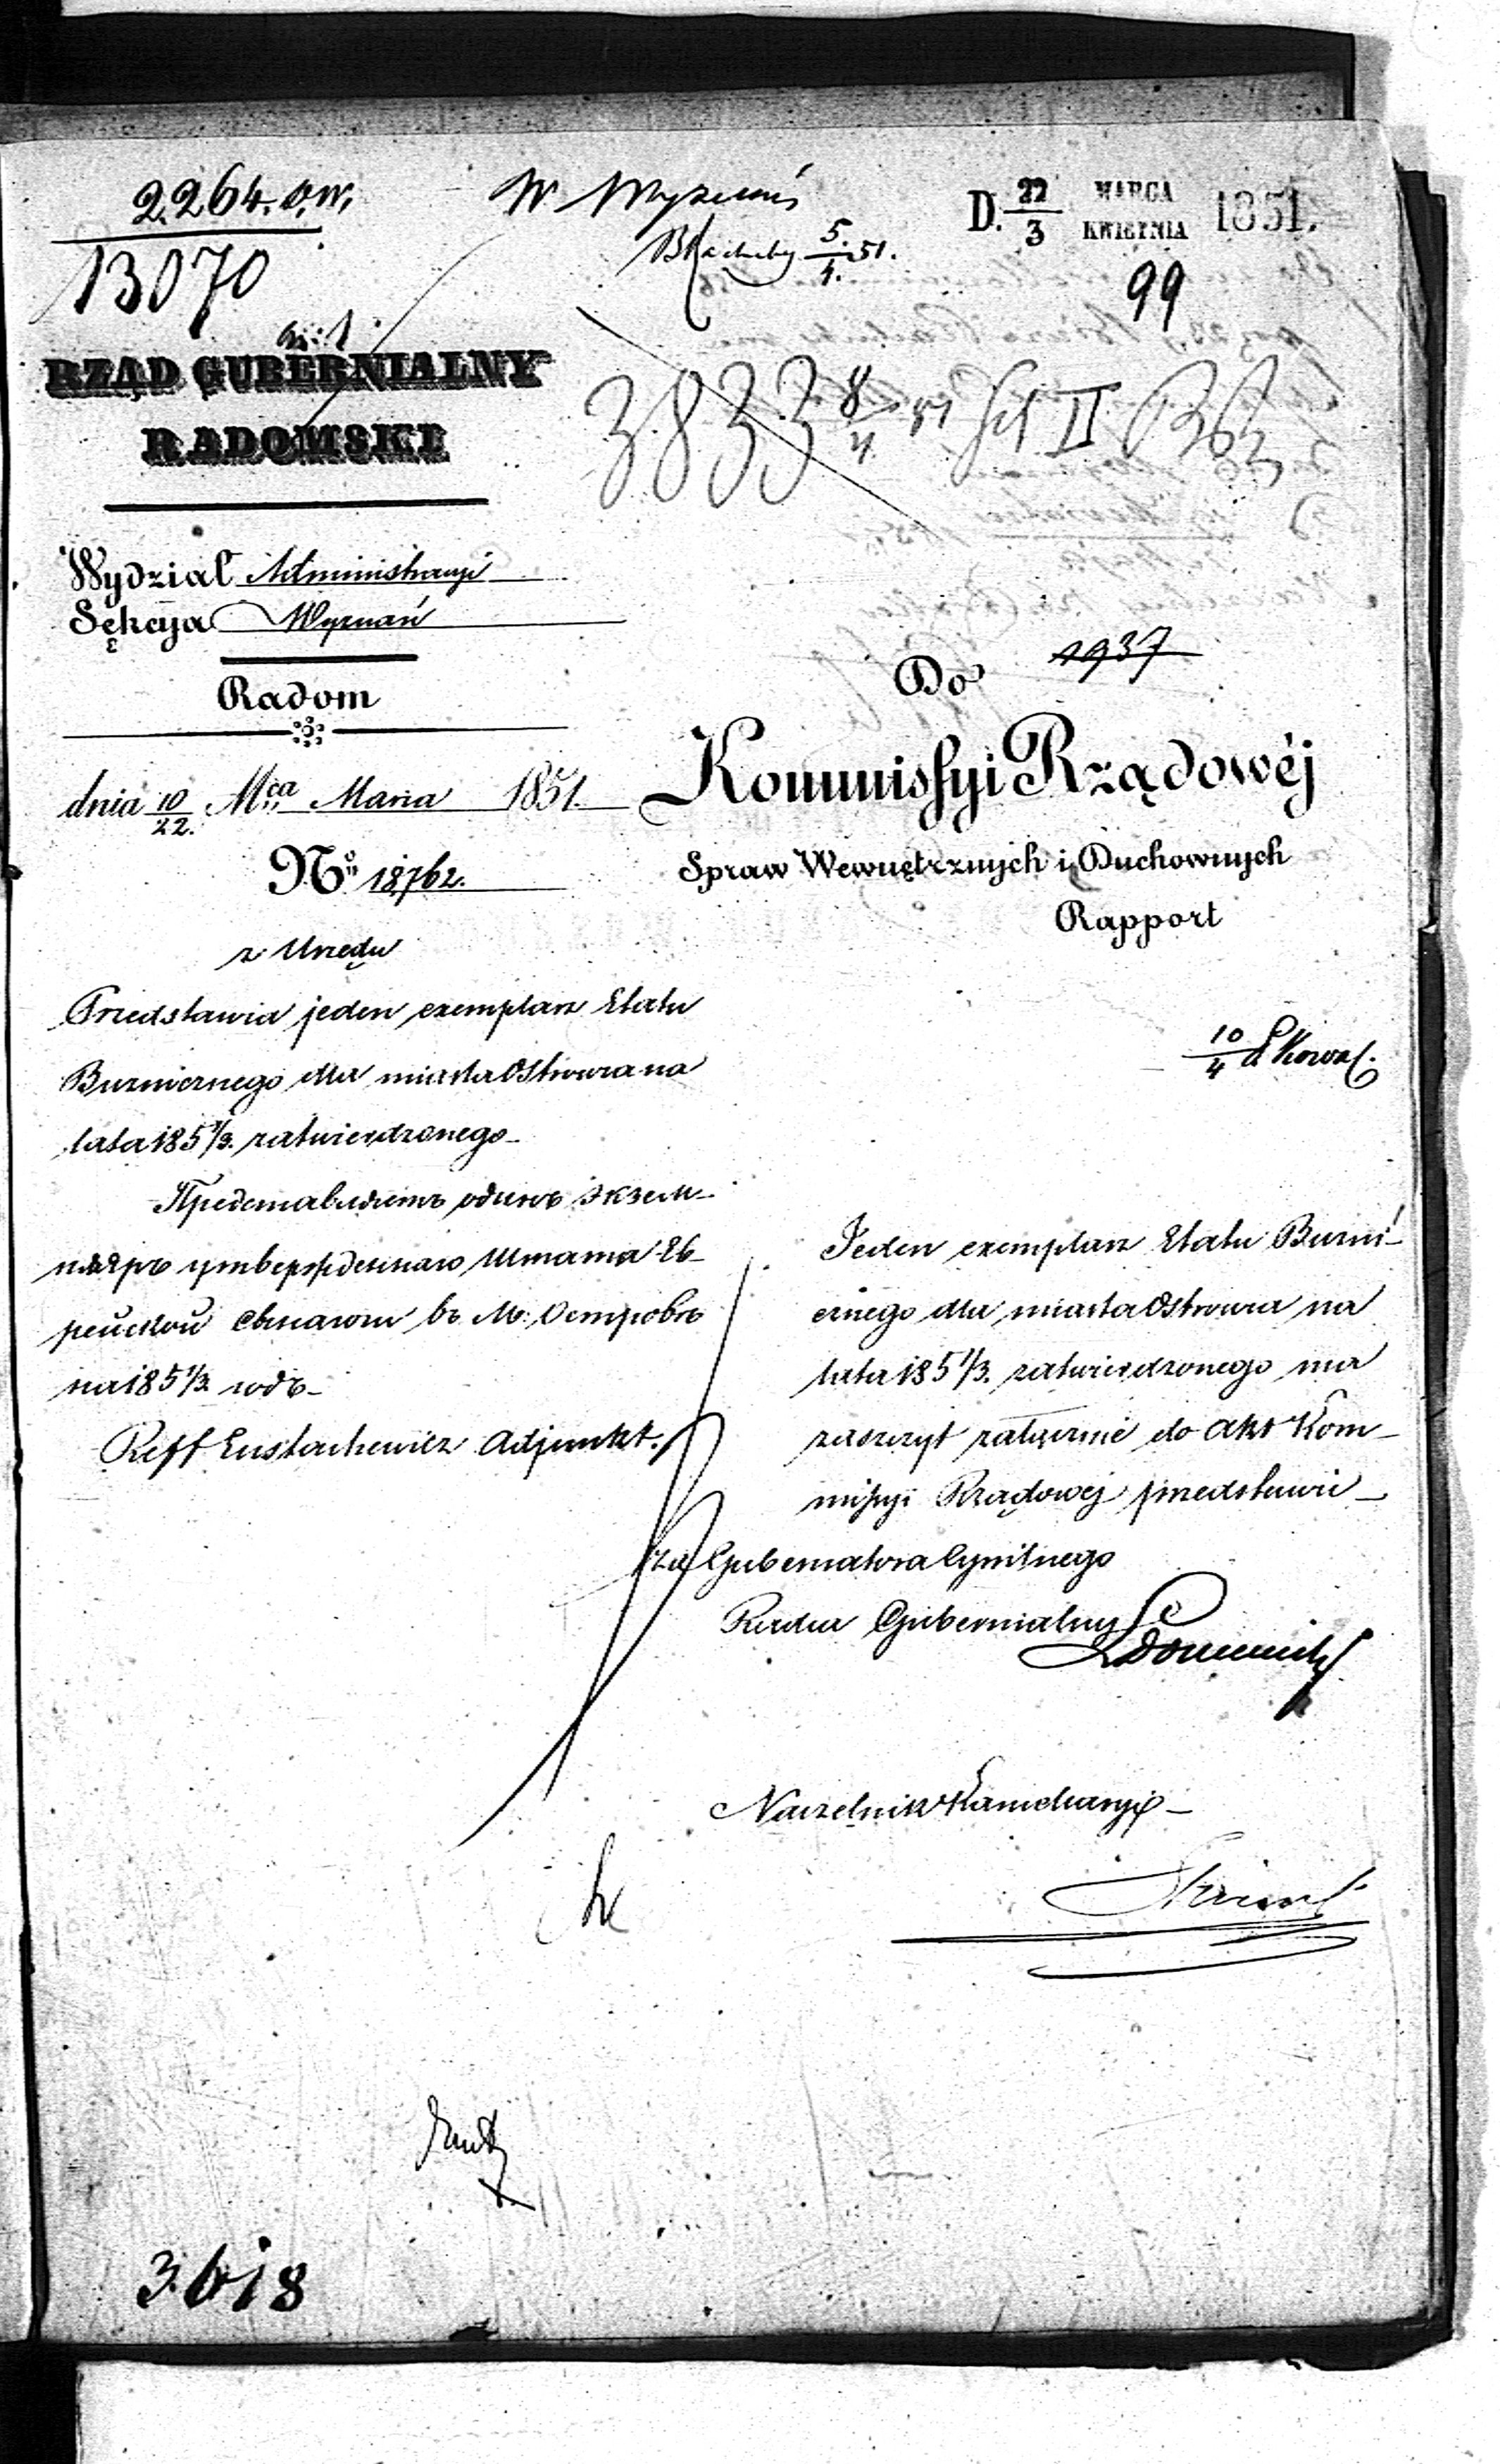 2264. O.W.
13070
W Wyznań
5/4. 51.
D. 22/3 MARCA KWIETNIA 1851.
99
RZĄD GUBERNIALNY
RADOMSKI
3833 8/4 51 II
Wydział Administracyi
Sekcya Wyznań
Radom
dnia 10/22. Mca Marca 1851.
No 18762.
1937
Do
Kommissyi Rządowéj
Spraw Wewnętrznych i Duchownych
Rapport
z Urzędu
Przedstawia jeden exemplarz Etatu
Bużnicznego dla miasta Ostrowca na
lata 185 1/3. zatwierdzonego
Представляетъ одинъ экзем-
пляръ утвержденнаго Штата Ев-
рейской Синагоги въ М: Островѣ
на 185 1/3. годъ
Reff Eustachewicz Adjunkt.
10/4
Jeden exemplarz Etatu Bużni-
cznego dla miasta Ostrowca na
lata 185 1/3. zatwierdzonego ma
zaszczyt załącznie do akt Kom-
missyi Rządowej przedstawić
za Gubernatora Cywilnego
Radca Gubernialny
Naczelnik Kancelaryi
3618